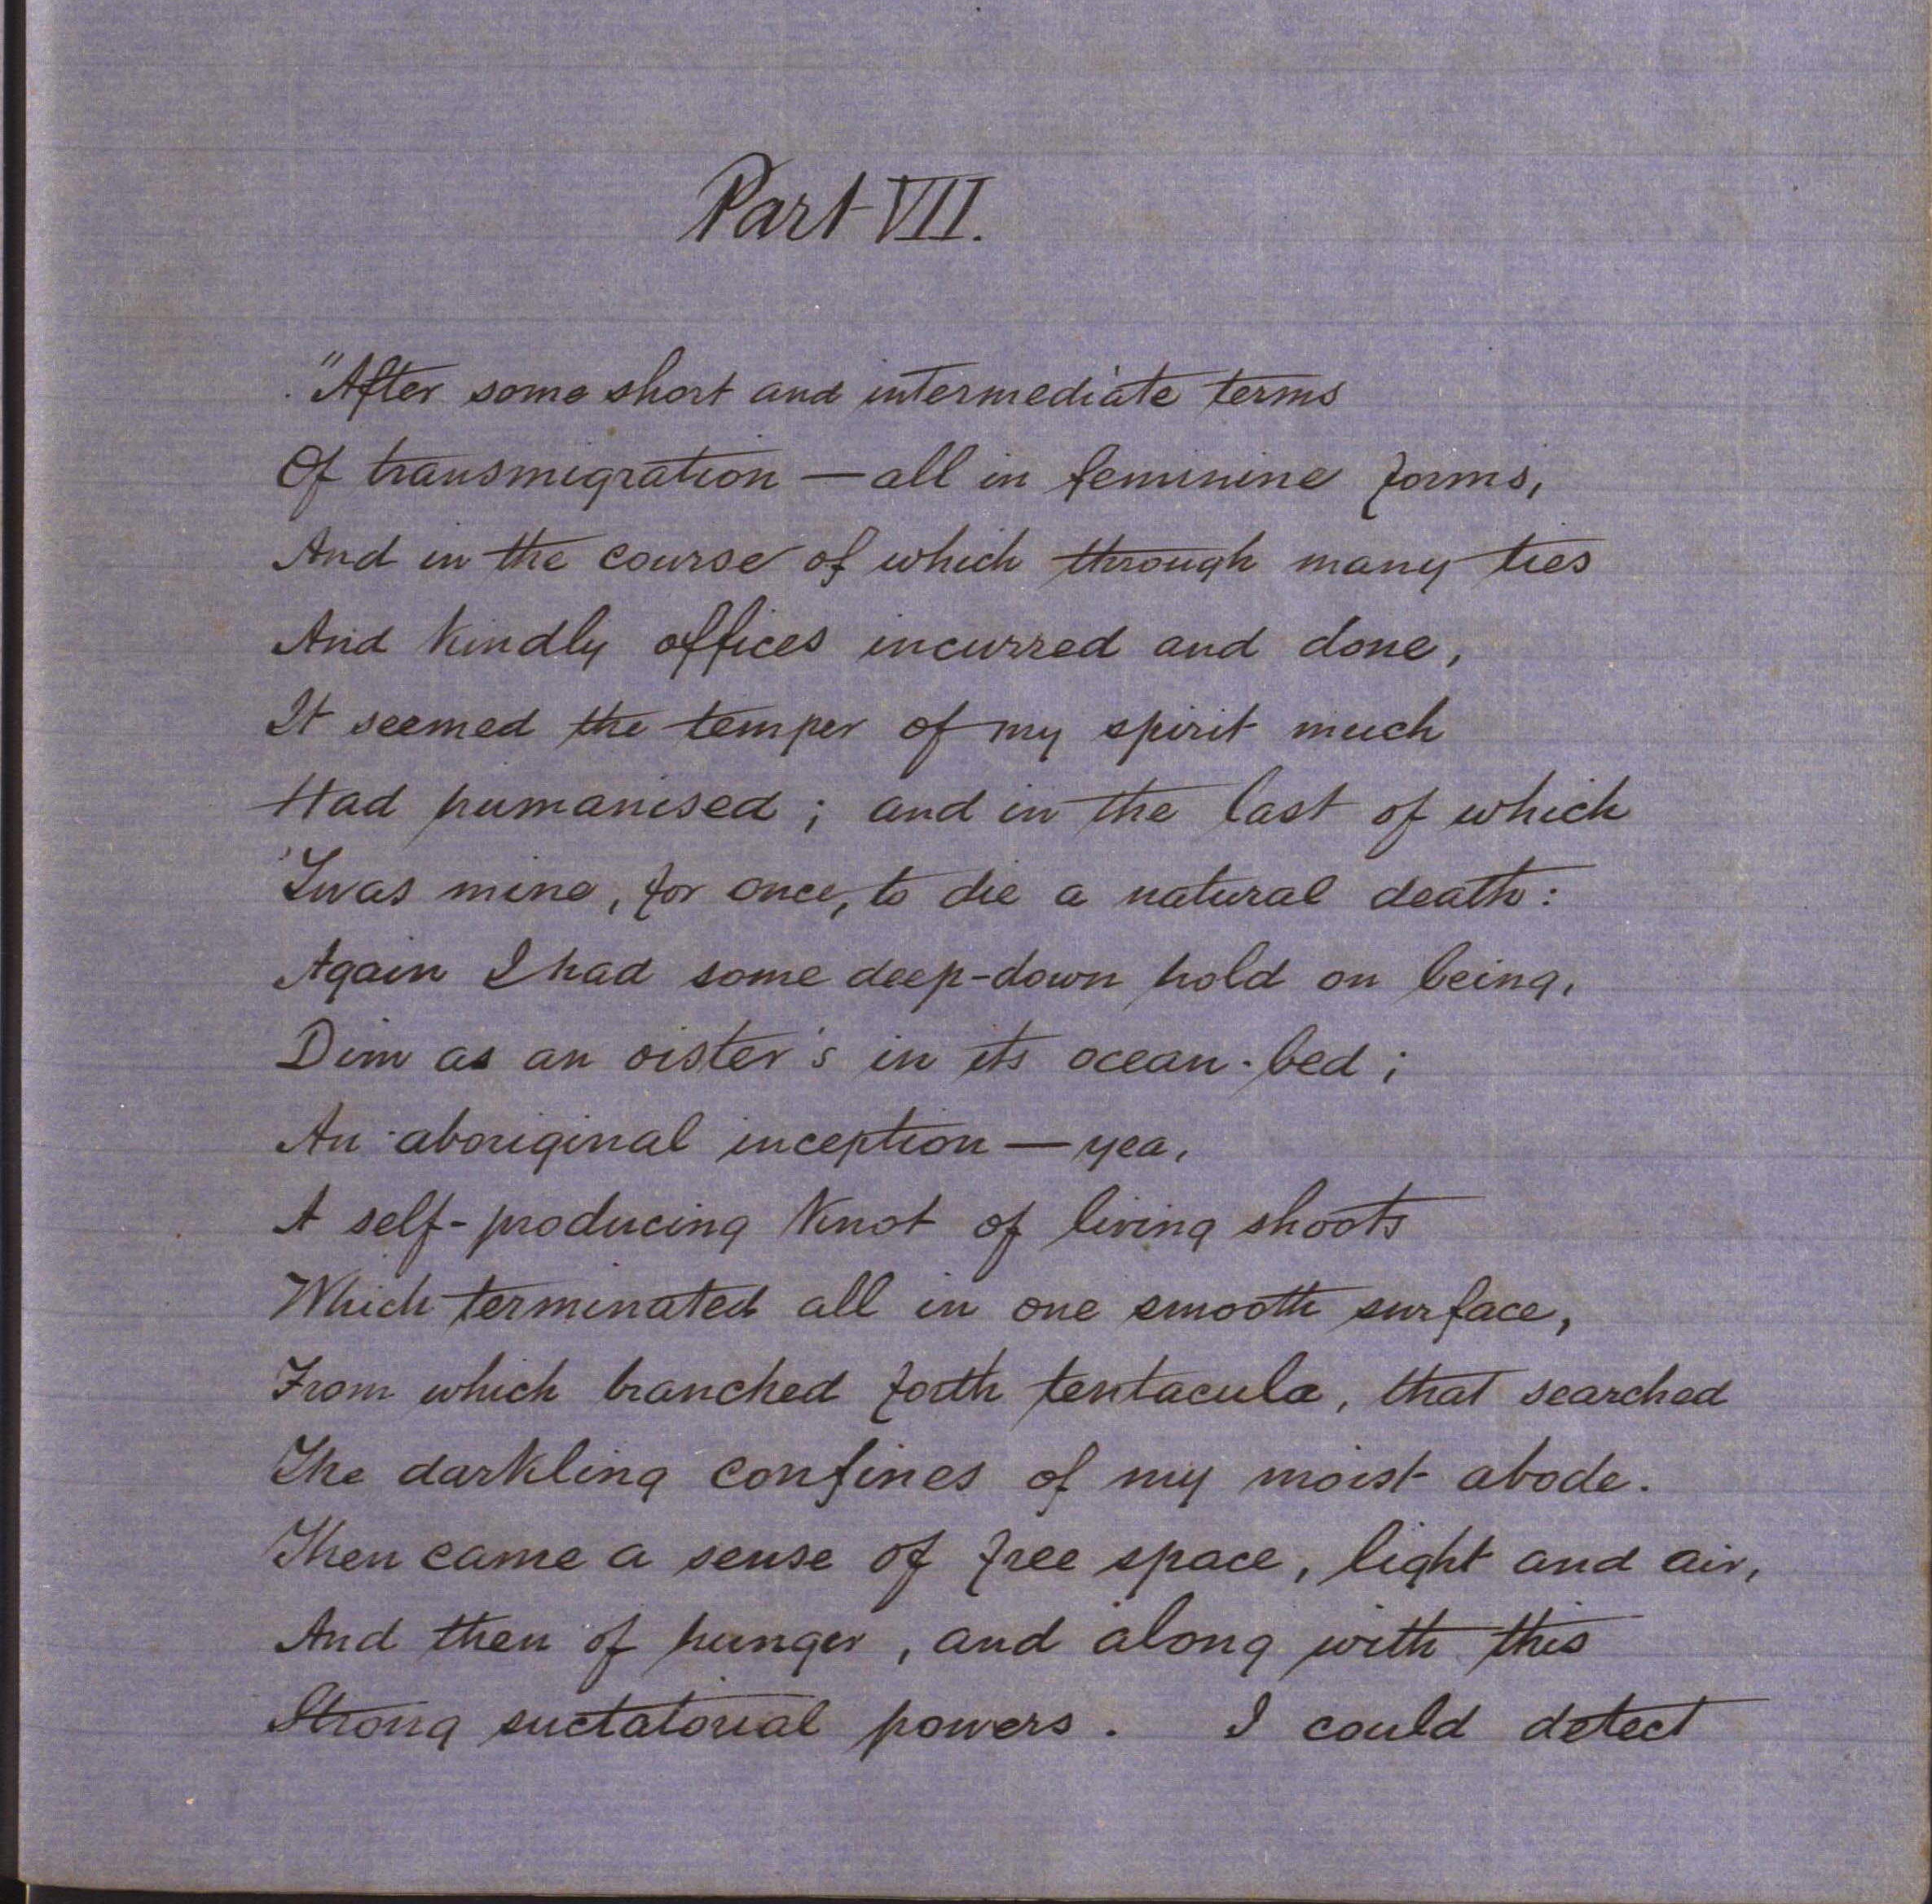 Part VII.
"After some short and intermediate terms
Of transmigration — all in feminine forms,
And in the course of which through many ties
And kindly offices incurred and done,
It seemed the temper of my spirit much
Had humanised; and in the last of which
'Twas mine, for once, to die a natural death:
Again I had some deep-down hold on being,
Dim as an oister's in its ocean-bed;
An aboriginal inception — yea,
A self-producing knot of living shoots
Which terminated all in one smooth surface,
From which branched forth tentacula, that searched
The darkling confines of my moist abode.
Then came a sense of free space, light and air,
And then of hunger, and along with this
Strong suctatorial powers. I could detect